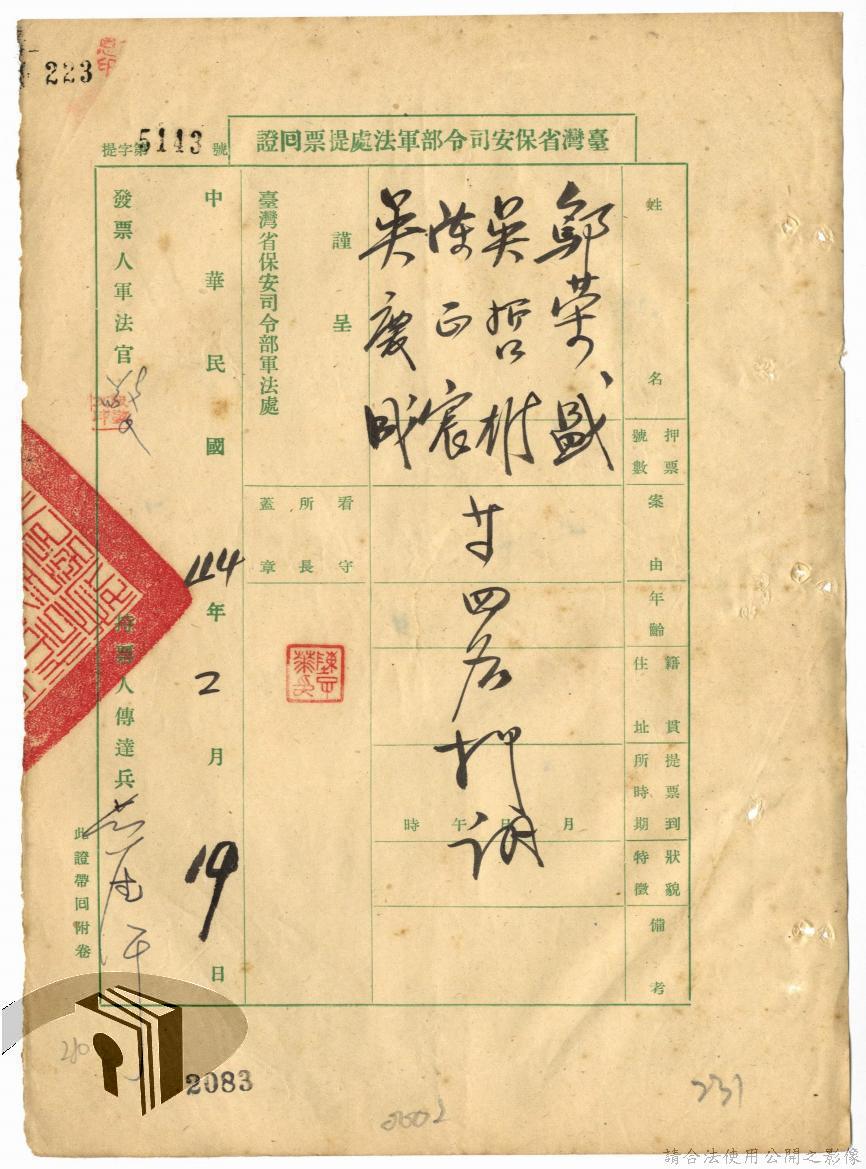 223
提字第5113號
臺灣省保安司令部軍法處提票回證
姓名
押票號數
案由
年齡
籍貫住址
提票到所時期
狀貌特徵
備考
鄭榮盛
吳哲樹
陳正宸
吳慶成
廿四名押訊
月 日 午 時
謹呈
臺灣省保安司令部軍法處
看守所長蓋章
中華民國44年2月19日
發票人軍法官
持票人傳達兵
此證帶回附卷
2083
231
請合法使用公開之影像